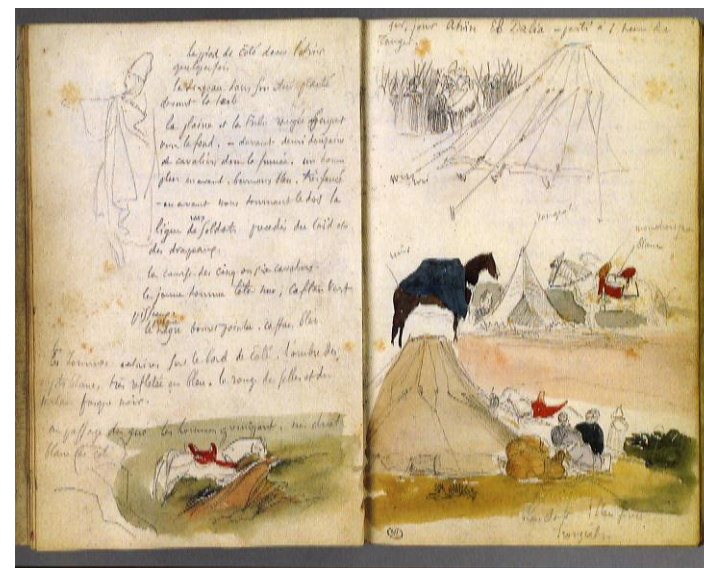 Le pied de côté dans l'étrier
quelquefois
le drapeau dans son étui planté
devant la tente
la plaine et la tribu rangée fuyant
vers le fond. – devant demi douzaine
de cavaliers dans la fumée. un homme
plus en avant. burnous bleu. très foncé
– en avant nous tournant le dos la
ligne de nos soldats précédés du Caïd et
des drapeaux.
la course des cinq ou six cavaliers
le jeune homme tête nue, caftan vert
le nègre bonnet pointu. caftan bleu
Les hommes éclairés sur le bord de côté. l'ombre des
objets blancs, très reflétée en bleu. le rouge des selles et du
turban presque noir.
au passage du gué. les hommes grimpant. un cheval
blanc de côté
1er jour Ahïn El Dalia – parti à 1 heure de
Tanger.
noir
blanc